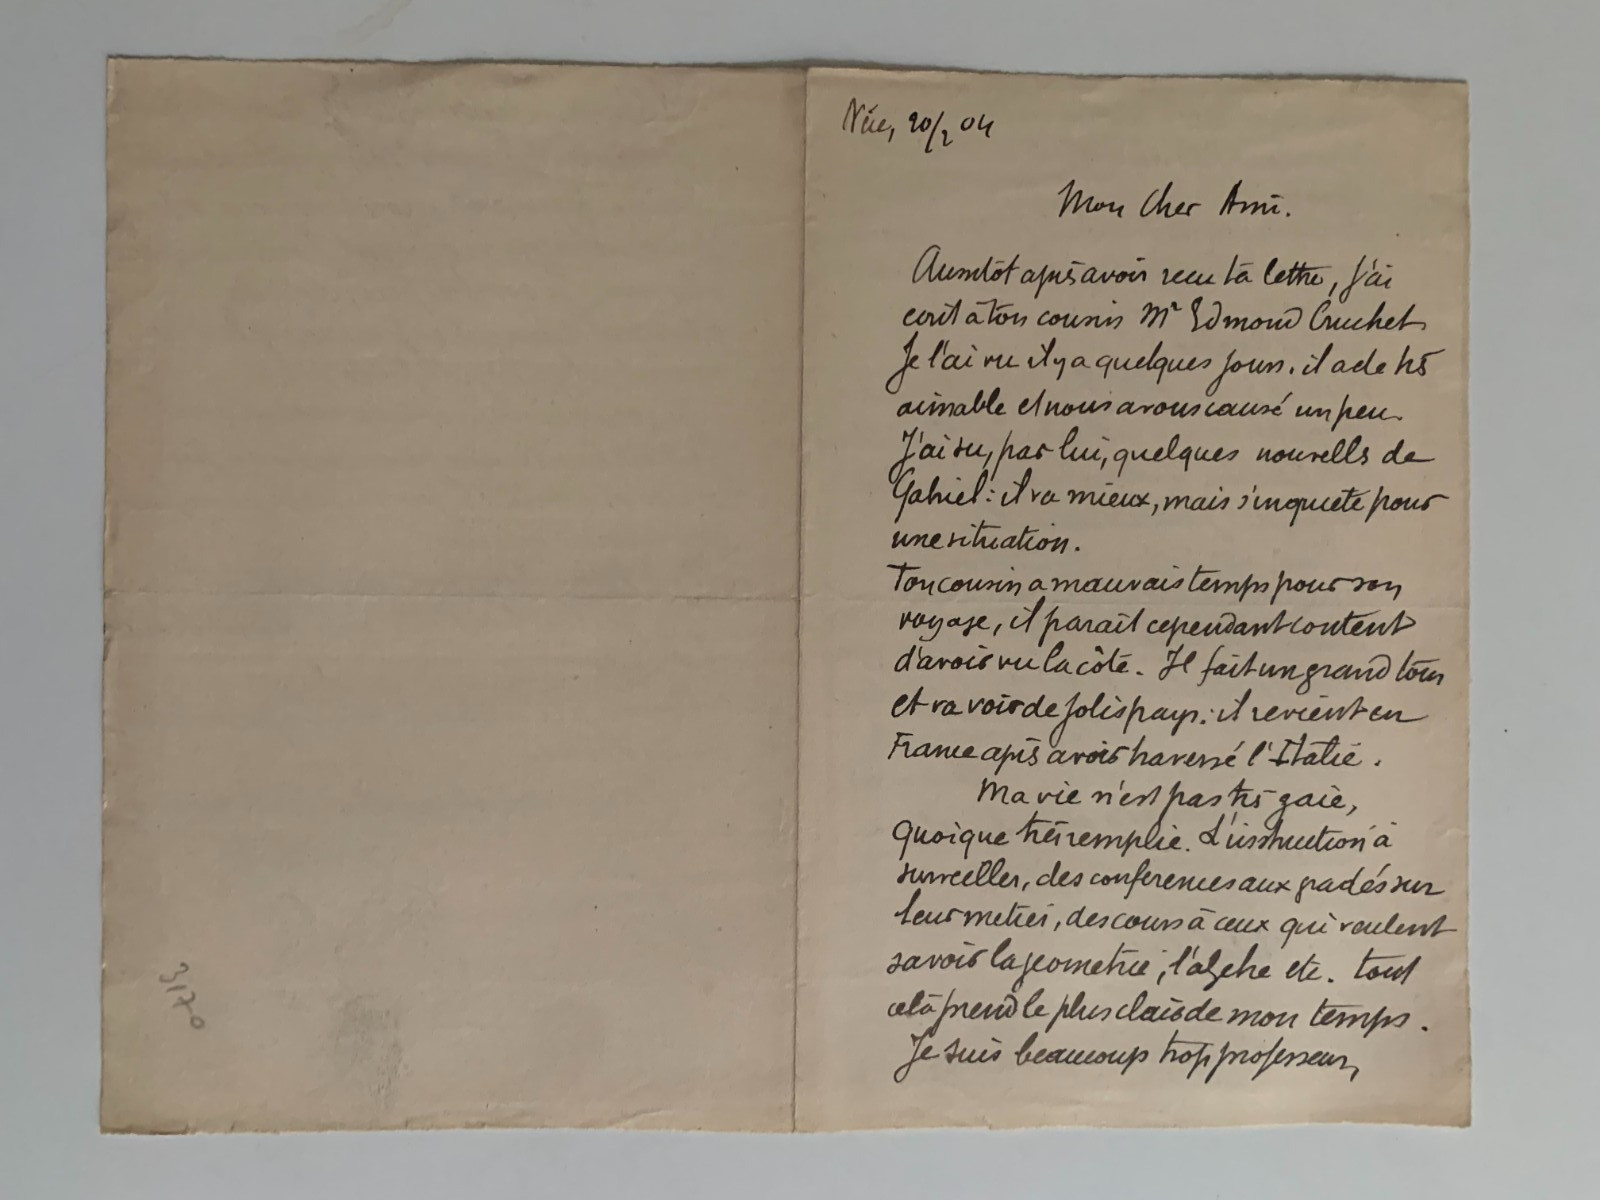 Nice, 20/2 04
Mon Cher Ami.
Aussitôt après avoir recu ta lettre, j'ai
ecrit à ton cousin Mr Edmond Cruchet
Je l'ai vu il y a quelques jours. il a ete très
aimable et nous avons causé un peu.
J'ai su, par lui, quelques nouvelles de
Gabriel : il va mieux, mais s'inquiete pour
une situation.
Ton cousin a mauvais temps pour son
voyage, il parait cependant content
d'avoir vu la côte. Il fait un grand tour
et va voir de jolis pays : il revient en
France après avoir traversé l'Italie.
Ma vie n'est pas très gaie,
quoique très remplie. L'instruction à
surveiller, des conferences aux gradés sur
leur metier, des cours à ceux qui veulent
savoir la geometrie, l'algebre etc. tout
cela prend le plus clair de mon temps.
Je suis beaucoup trop professeur,